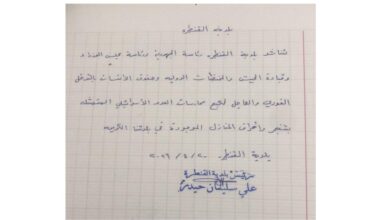 بلدية القنطرة
تناشد بلدية القنطرة رئاسة الجمهورية ورئاسة مجلس الوزراء
وقيادة الجيش والمنظمات الدولية وحقوق الانسان بالتدخل
الفوري والعاجل لكبح ممارسات العدو الاسرائيلي المتمثلة
بتفجير واحراق المنازل الموجودة في بلدتنا الكريمة
بلدية القنطرة
رئيس بلدية القنطرة
علي سليمان حيدر